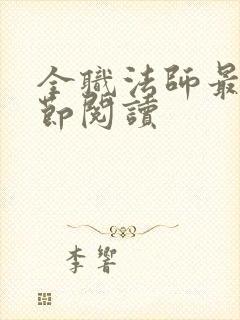 全職法師最
節閱讀
李響